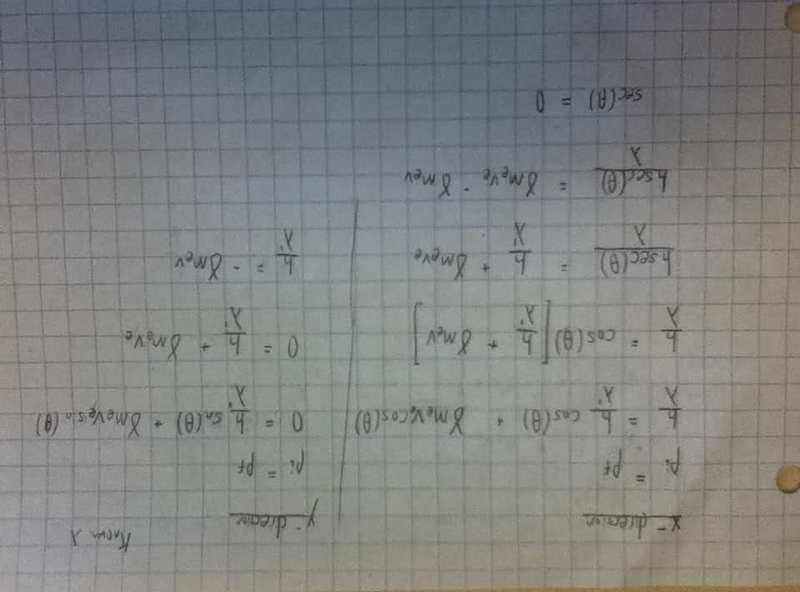 x-direction
pi = pf
h/λ = h/λ' cos(θ) + γmeve cos(θ)
h/λ = cos(θ)[h/λ' + γmev]
h sec(θ)/λ = h/λ' + γmeve
h sec(θ)/λ = γmeve - γmev
sec(θ) = 0
y-direction
Know λ
pi = pf
0 = h/λ' sin(θ) + γmeve sin(θ)
0 = h/λ' + γmeve
h/λ' = -γmev